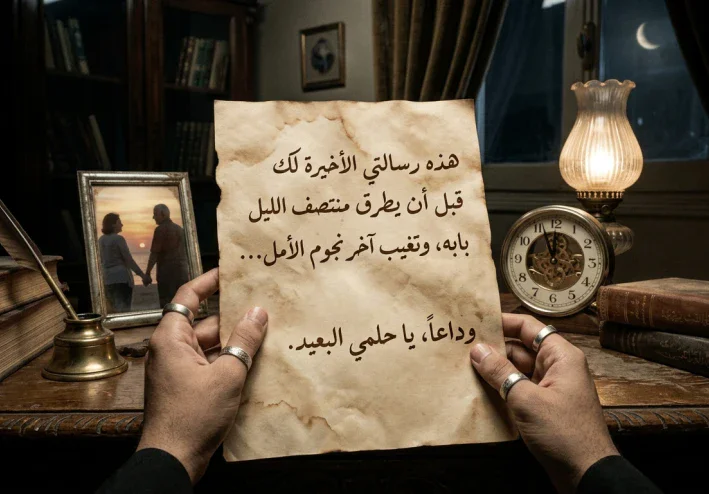 هذه رسالتي الأخيرة لك
قبل أن يطرق منتصف الليل
بابه، وتغيب آخر نجوم الأمل...
وداعاً، يا حلمي البعيد.